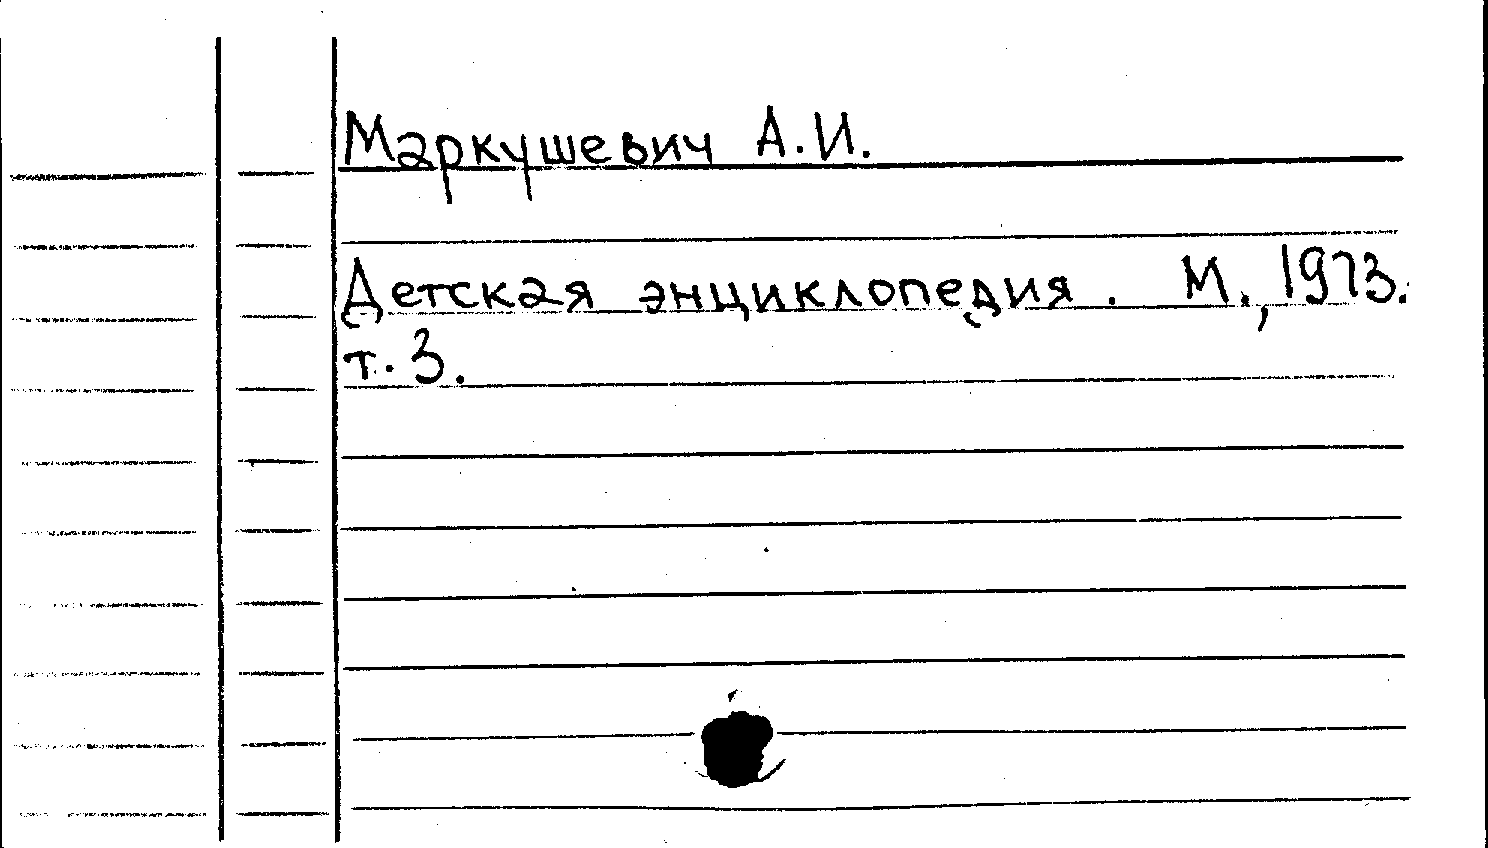 Маркушевич А.И.
Детская энциклопедия. М., 1973.
т. 3.